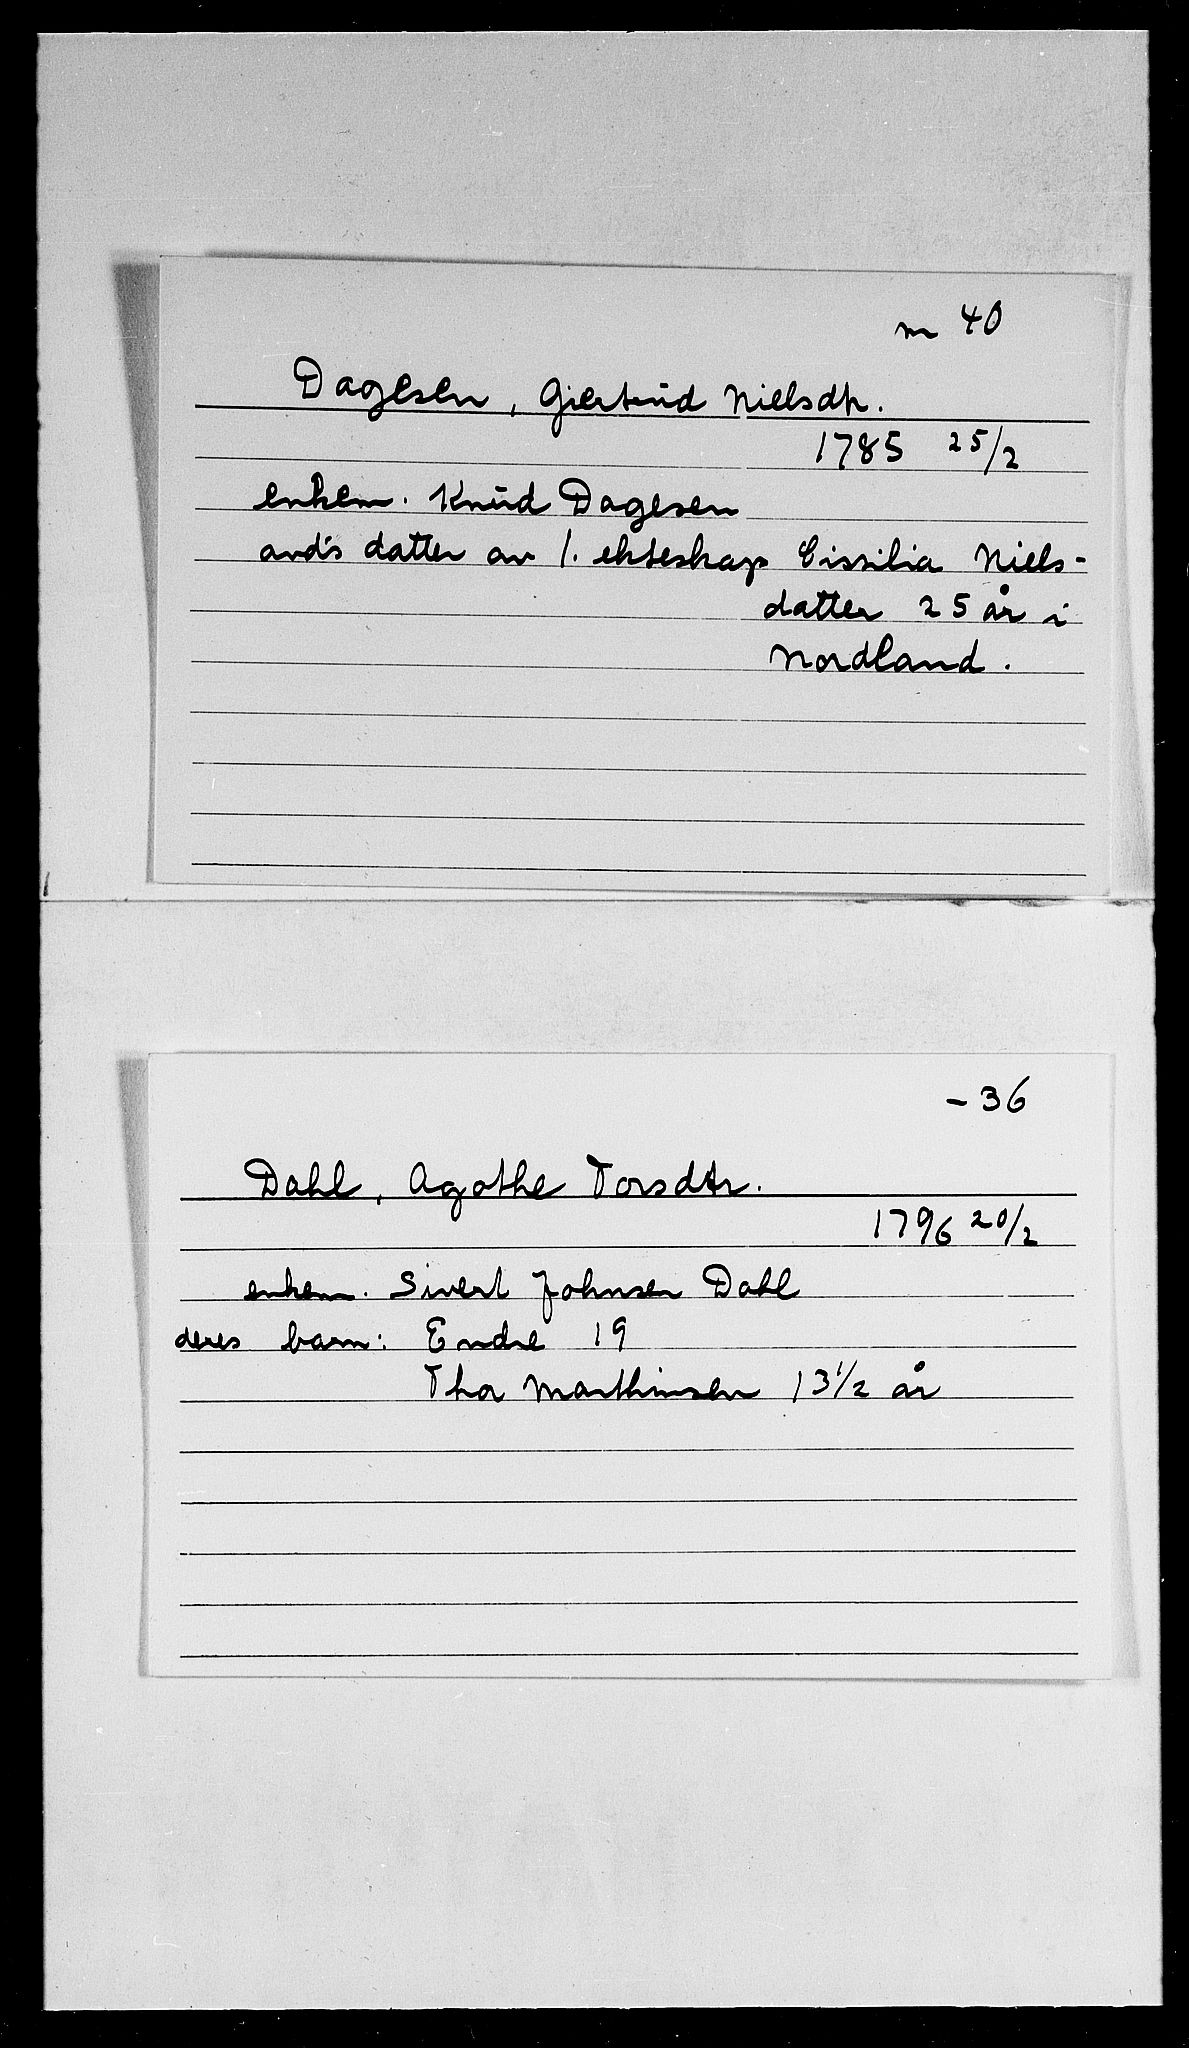 m 40
Dagesen, Giertrud Nielsdtr.
1785 25/2
enkem. Knud Dagesen
avd's datter av 1. ekteskap Cissilia Niels-
datter 25 år i
Nordland.
- 36
Dahl, Agathe Torsdtr.
1796 20/2
enkem. Sivert Johnsen Dahl
deres barn: Endre 19
Tha Marthinsen 13 1/2 år